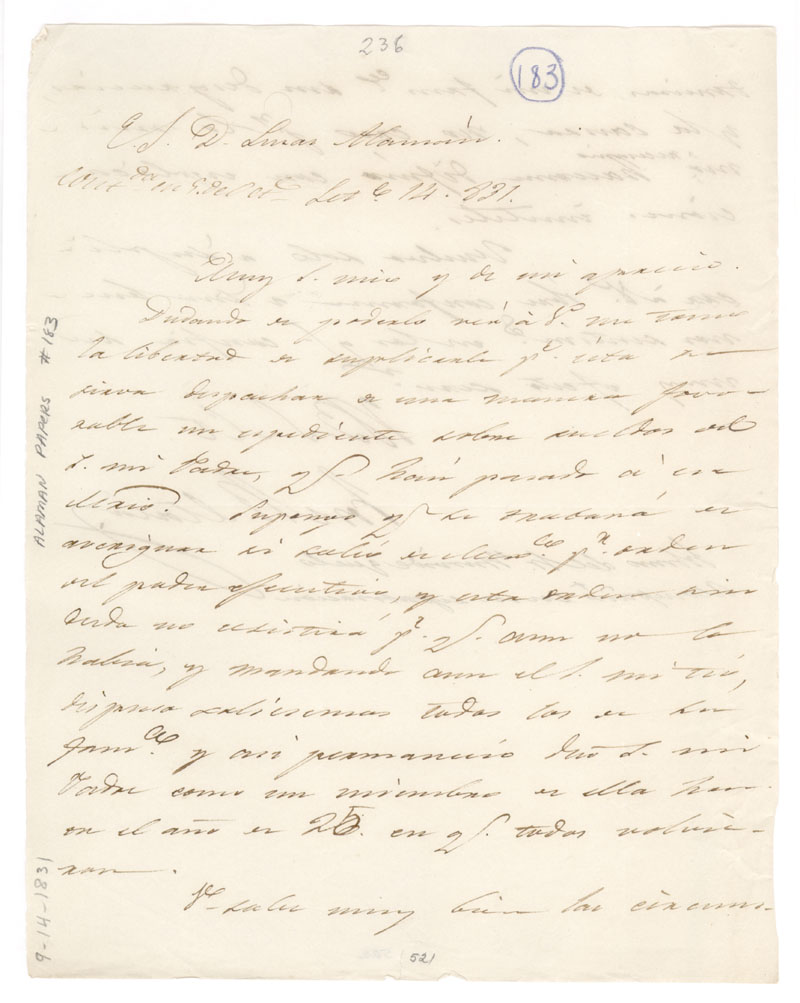 236
183
E. S. D. Lucas Alamán.
Set.e 14. 831.
Muy S. mio y de mi aprecio.
Dudando el poderlo ver á V. me tomo
la libertad de suplicarle p.a q.e esta se
sirva despachar de una manera favo-
rable un espediente sobre sueldos del
S. mi Padre, q.e han pasado á ese
Ministerio. Supongo q.e se tratará de
averiguar si salió p.r orden
del poder ejecutivo, y esta orden sin
duda no existirá p.r q.e aun no lo
habia, y mandando aun el S. mi tio,
dispuso saliesemos todos los de su
fam.a y asi permaneció dho S. mi
Padre como un miembro de ella has-
en el año de 25. en q.e todos volvie-
ron.
V. sabe muy bien las circuns-
ALAMAN PAPERS #183
9-14-1831
521